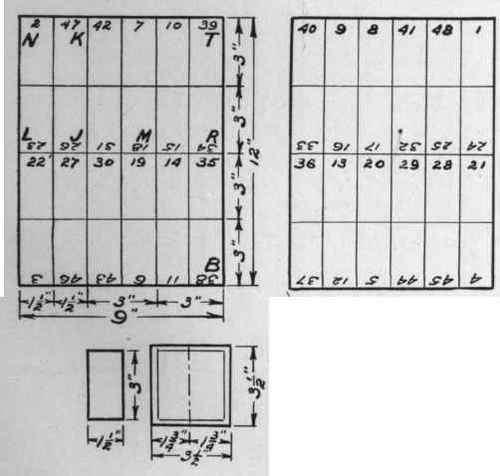 2 47 42 7 10 39
N K T
L J M R
23 26 31 18 15 34
22 27 30 19 14 35
B
3 46 43 6 11 38
3"
3"
12"
3"
3"
1½" 1½" 3" 3"
9"
40 9 8 41 48 1
33 16 17 32 25 24
36 13 20 29 28 21
37 12 5 44 45 4
3"
3½"
1½"
1¾" 1¾"
3½"